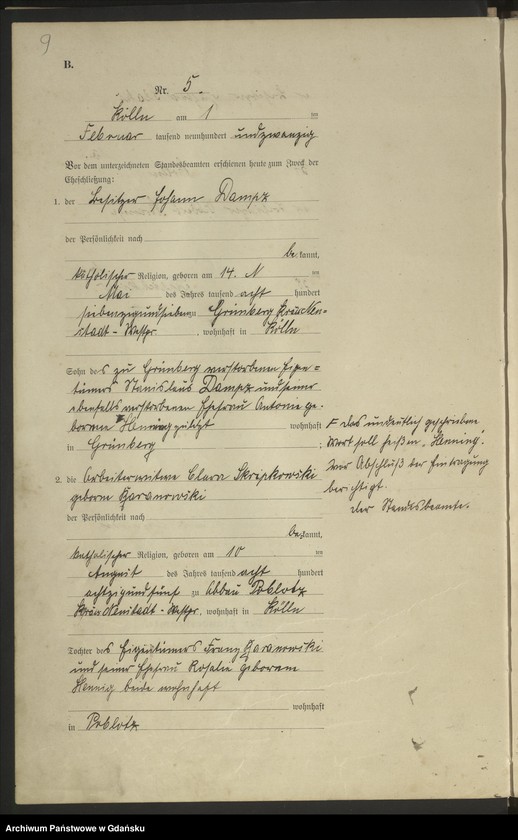 9
B.
Nr. 5.
Kölln am 1 ten
Februar tausend neunhundert undzwanzig
Vor dem unterzeichneten Standesbeamten erschienen heute zum Zweck der
Eheschließung:
1. der Besitzer Johann Dampz
der Persönlichkeit nach
be kannt,
katholischer Religion, geboren am 14. ten
Mai des Jahres tausend acht hundert
siebenzigundsieben zu Grünberg
stadt - Westpr. , wohnhaft in Kölln
Sohn des zu Grünberg verstorbenen Eigen=
tümers Stanislaus Dampz und seiner
ebenfalls verstorbenen Ehefrau Antonie ge-
borenen Henning zuletzt wohnhaft
in Grünberg
2. die Arbeiterwitwe Clara Skripkowski
geborn
der Persönlichkeit nach
be kannt,
katholischer Religion, geboren am 10 ten
August des Jahres tausend acht hundert
achtzigundfünf zu Abbau Poblotz
Kreis Neustadt - Westpr. , wohnhaft in Kölln
Tochter des Eigentümers Franz
und seiner Ehefrau Rosalie geborenen
Hennig beide wohnhaft
wohnhaft
in Poblotz
F Das undeutlich geschriebene
Wort soll heißen "Henning".
Vor Abschluß der Eintragung
berichtigt.
Der Standesbeamte.
Archiwum Państwowe w Gdańsku